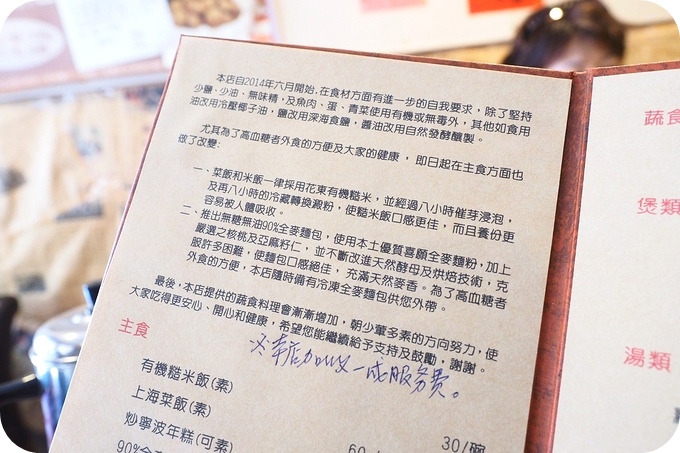 本店自2014年六月開始,在食材方面有進一步的自我要求,除了堅持
少鹽、少油、無味精,及魚肉、蛋、青菜使用有機或無毒外,其他如食用
油改用冷壓椰子油,鹽改用深海食鹽,醬油改用自然發酵釀製。
尤其為了高血糖者外食的方便及大家的健康,即日起在主食方面也
做了改變:
一、菜飯和米飯一律採用花東有機糙米,並經過八小時催芽浸泡,
及再八小時的冷藏轉換澱粉,使糙米飯口感更佳,而且養份更
容易被人體吸收。
二、推出無糖無油90%全麥麵包,使用本土優質喜願全麥麵粉,加上
嚴選之核桃及亞麻籽仁,並不斷改進天然酵母及烘焙技術,克
服許多困難,使麵包口感絕佳,充滿天然麥香。為了高血糖者
外食的方便,本店隨時備有冷凍全麥麵包供您外帶。
最後,本店提供的蔬食料理會漸漸增加,朝少葷多素的方向努力,使
大家吃得更安心、開心和健康,希望您能繼續給予支持及鼓勵,謝謝。
本店加收一成服务费。
主食
有機糙米飯(素)
30/碗
上海菜飯(素)
炒寧波年糕(可素)
60
90%全
蔬食
煲類
湯類